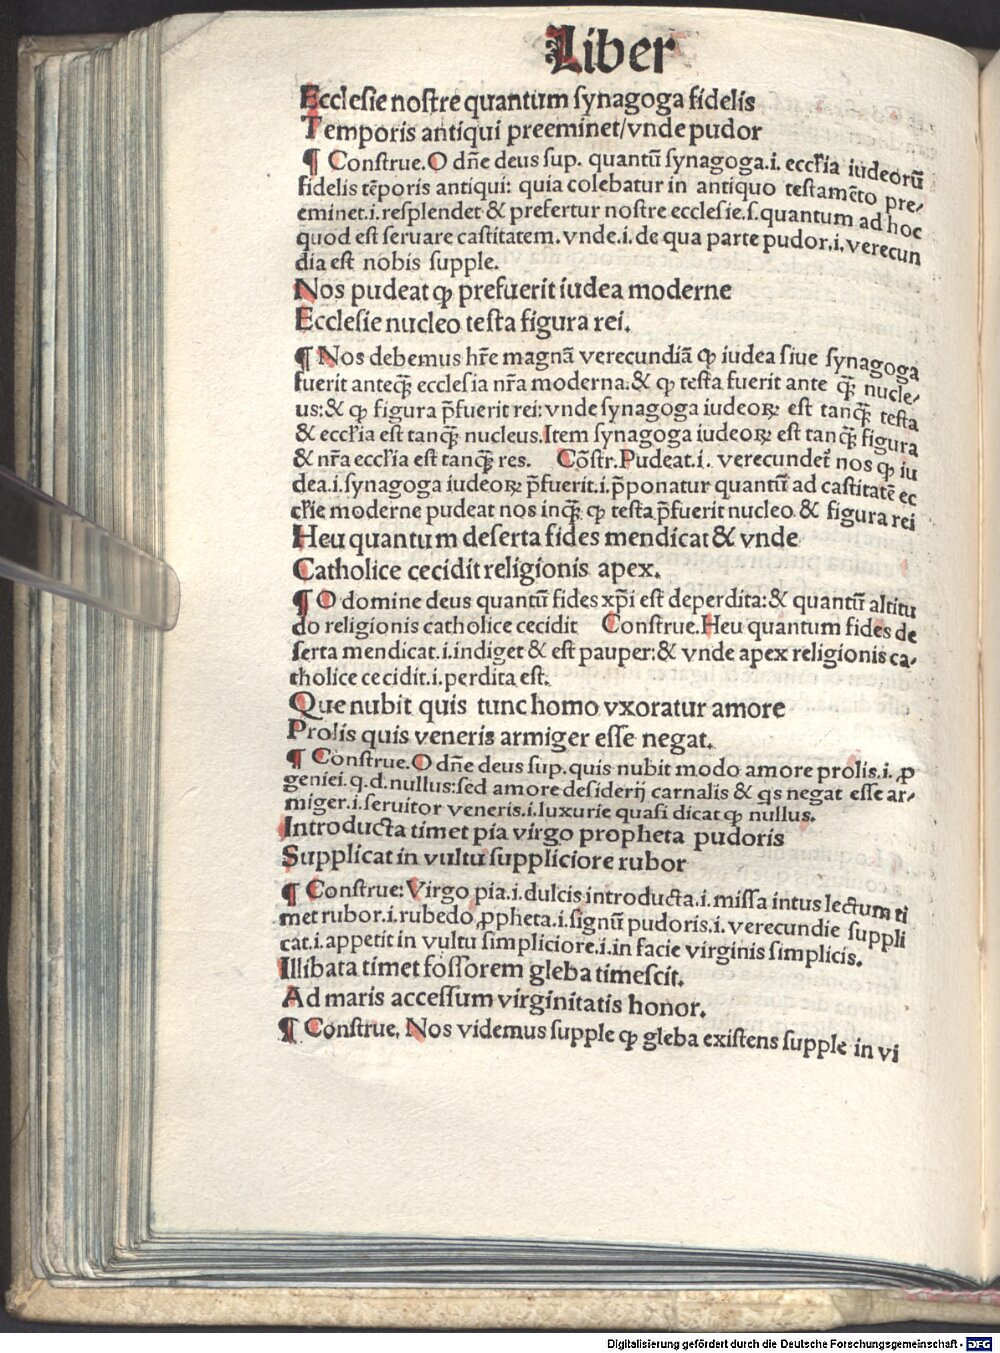 Liber
Ecclesie nostre quantum synagoga fidelis
Temporis antiqui preeminet/vnde pudor
¶ Construe. O dn̄e deus sup. quantū synagoga .i. eccl'ia iudeorū
fidelis tēporis antiqui: quia colebatur in antiquo testamēto pre/
eminet .i. resplendet & prefertur nostre ecclesie .s. quantum ad hoc
quod est seruare castitatem. vnde .i. de qua parte pudor .i. verecun
dia est nobis supple.
Nos pudeat ꝙ prefuerit iudea moderne
Ecclesie nucleo testa figura rei.
¶ Nos debemus hr̄e magnā verecundiā ꝙ iudea siue synagoga
fuerit anteqꝫ̄ ecclesia nr̄a moderna: & ꝙ testa fuerit ante qꝫ̄ nucle/
us: & ꝙ figura p̄fuerit rei: vnde synagoga iudeoꝝ est tanqꝫ̄ testa
& eccl'ia est tanqꝫ̄ nucleus. Item synagoga iudeoꝝ est tanqꝫ̄ figura
& nr̄a eccl'ia est tanqꝫ̄ res. Cōstr. Pudeat .i. verecundet̄ nos ꝙ iu
dea .i. synagoga iudeoꝝ p̄fuerit .i. p̄ponatur quantū ad castitatē ec
cl'ie moderne pudeat nos inqꝫ̄ ꝙ testa p̄fuerit nucleo & figura rei
Heu quantum deserta fides mendicat & vnde
Catholice cecidit religionis apex.
¶ O domine deus quantū fides xp̄i est deperdita: & quantū altitu
do religionis catholice cecidit Construe. Heu quantum fides de
serta mendicat .i. indiget & est pauper: & vnde apex religionis ca/
tholice cecidit .i. perdita est.
Que nubit quis tunc homo vxoratur amore
Prolis quis veneris armiger esse negat.
¶ Construe. O dn̄e deus sup. quis nubit modo amore prolis .i. ꝓ
geniei .q.d. nullus: sed amore desiderij carnalis & qs negat esse ar/
miger .i. seruitor veneris .i. luxurie quasi dicat ꝙ nullus.
Introducta timet pia virgo propheta pudoris
Supplicat in vultu suppliciore rubor
¶ Construe: Virgo pia .i. dulcis introducta .i. missa intus lectum ti
met rubor .i. rubedo ꝓpheta .i. signū pudoris .i. verecundie suppli
cat .i. appetit in vultu simpliciore .i. in facie virginis simplicis.
Illibata timet fossorem gleba timescit.
Ad maris accessum virginitatis honor.
¶ Construe. Nos videmus supple ꝙ gleba existens supple in vi
Digitalisierung gefördert durch die Deutsche Forschungsgemeinschaft - DFG